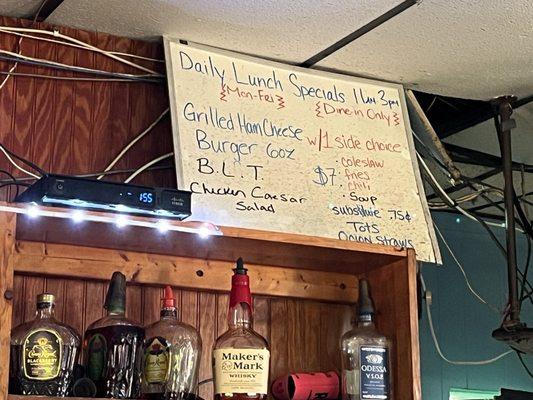 Daily Lunch Specials 11AM 3pm
{Mon-Fri} {Dine-in Only}
Grilled Ham Cheese w/1 side choice
Burger 6oz
• coleslaw
B.L.T. $7 • fries
• chili
Chicken Caesar Salad
• Soup
substitute .75¢
Tots
Onion Straws
155
CISCO
Crown Royal
BLACKBERRY
Maker's
Mark
WHISKY
ODESSA
V.S.O.P